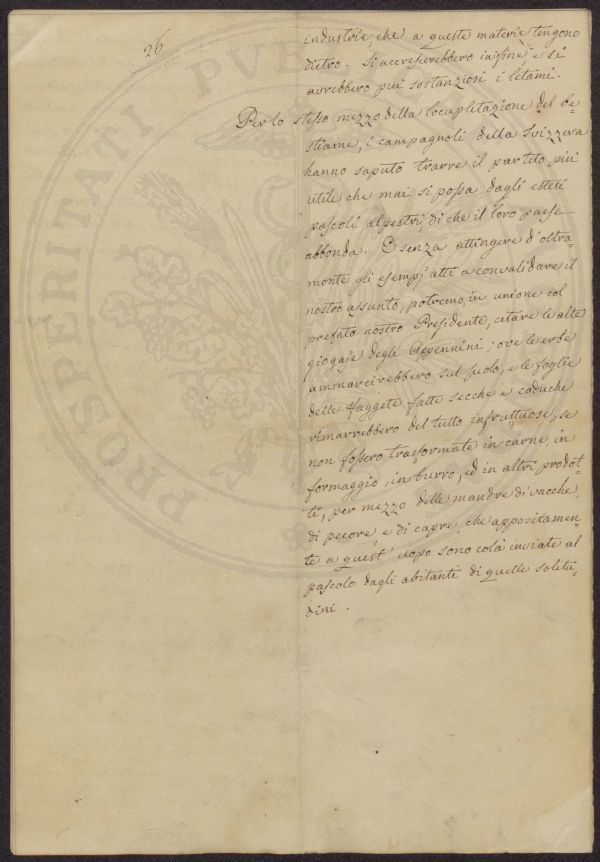 26
industrie, che a queste materie tengono
dietro. Si accrescerebbero infine, e si
avrebbero più sostanziosi i letami.
Per lo stesso mezzo della locupletazione del be-
stiame, i campagnoli della Svizzera
hanno saputo trarre il partito più
utile che mai si possa dagli estesi
pascoli alpestri, di che il loro paese
abbonda. E senza attingere d'oltra-
monte gli esempj atti a convalidare il
nostro assunto, potremo, in unione col
prefato nostro Presidente, citare le alte
giogaje degli Appennini; ove le erbe
ammarcirebbero sul suolo, e le foglie
delle Faggete fatte secche e caduche
rimarrebbero del tutto infruttuose, se
non fossero trasformate in carne, in
formaggio, in burro, ed in altri prodot-
ti, per mezzo delle mandre di vacche,
di pecore e di capre, che appositamen-
te a quest' uopo sono colà inviate al
pascolo dagli abitanti di quelle solitu-
dini.
PROSPERITATI PUB